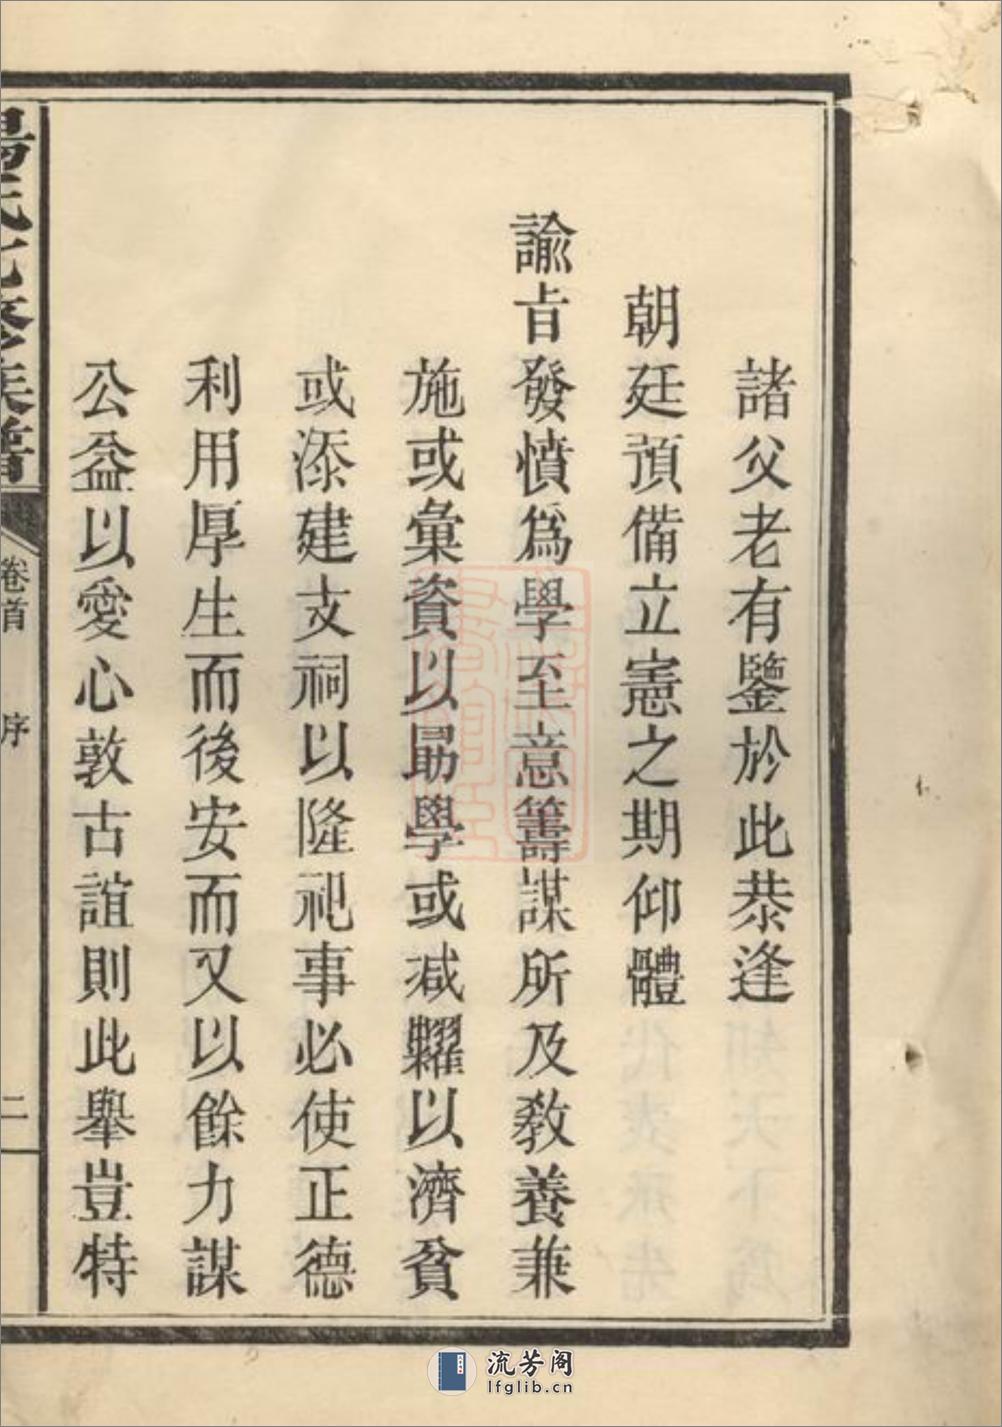 諸父老有鑒於此恭逢
朝廷預備立憲之期仰體
諭旨發憤爲學至意籌謀所及敎養兼
施或彙資以勗學或減糶以濟貧
或添建支祠以隆祀事必使正德
利用厚生而後安而又以餘力謀
公益以愛心敦古誼則此舉豈特
氏七修族譜
卷首
序
二
流芳阁
lfglib.cn